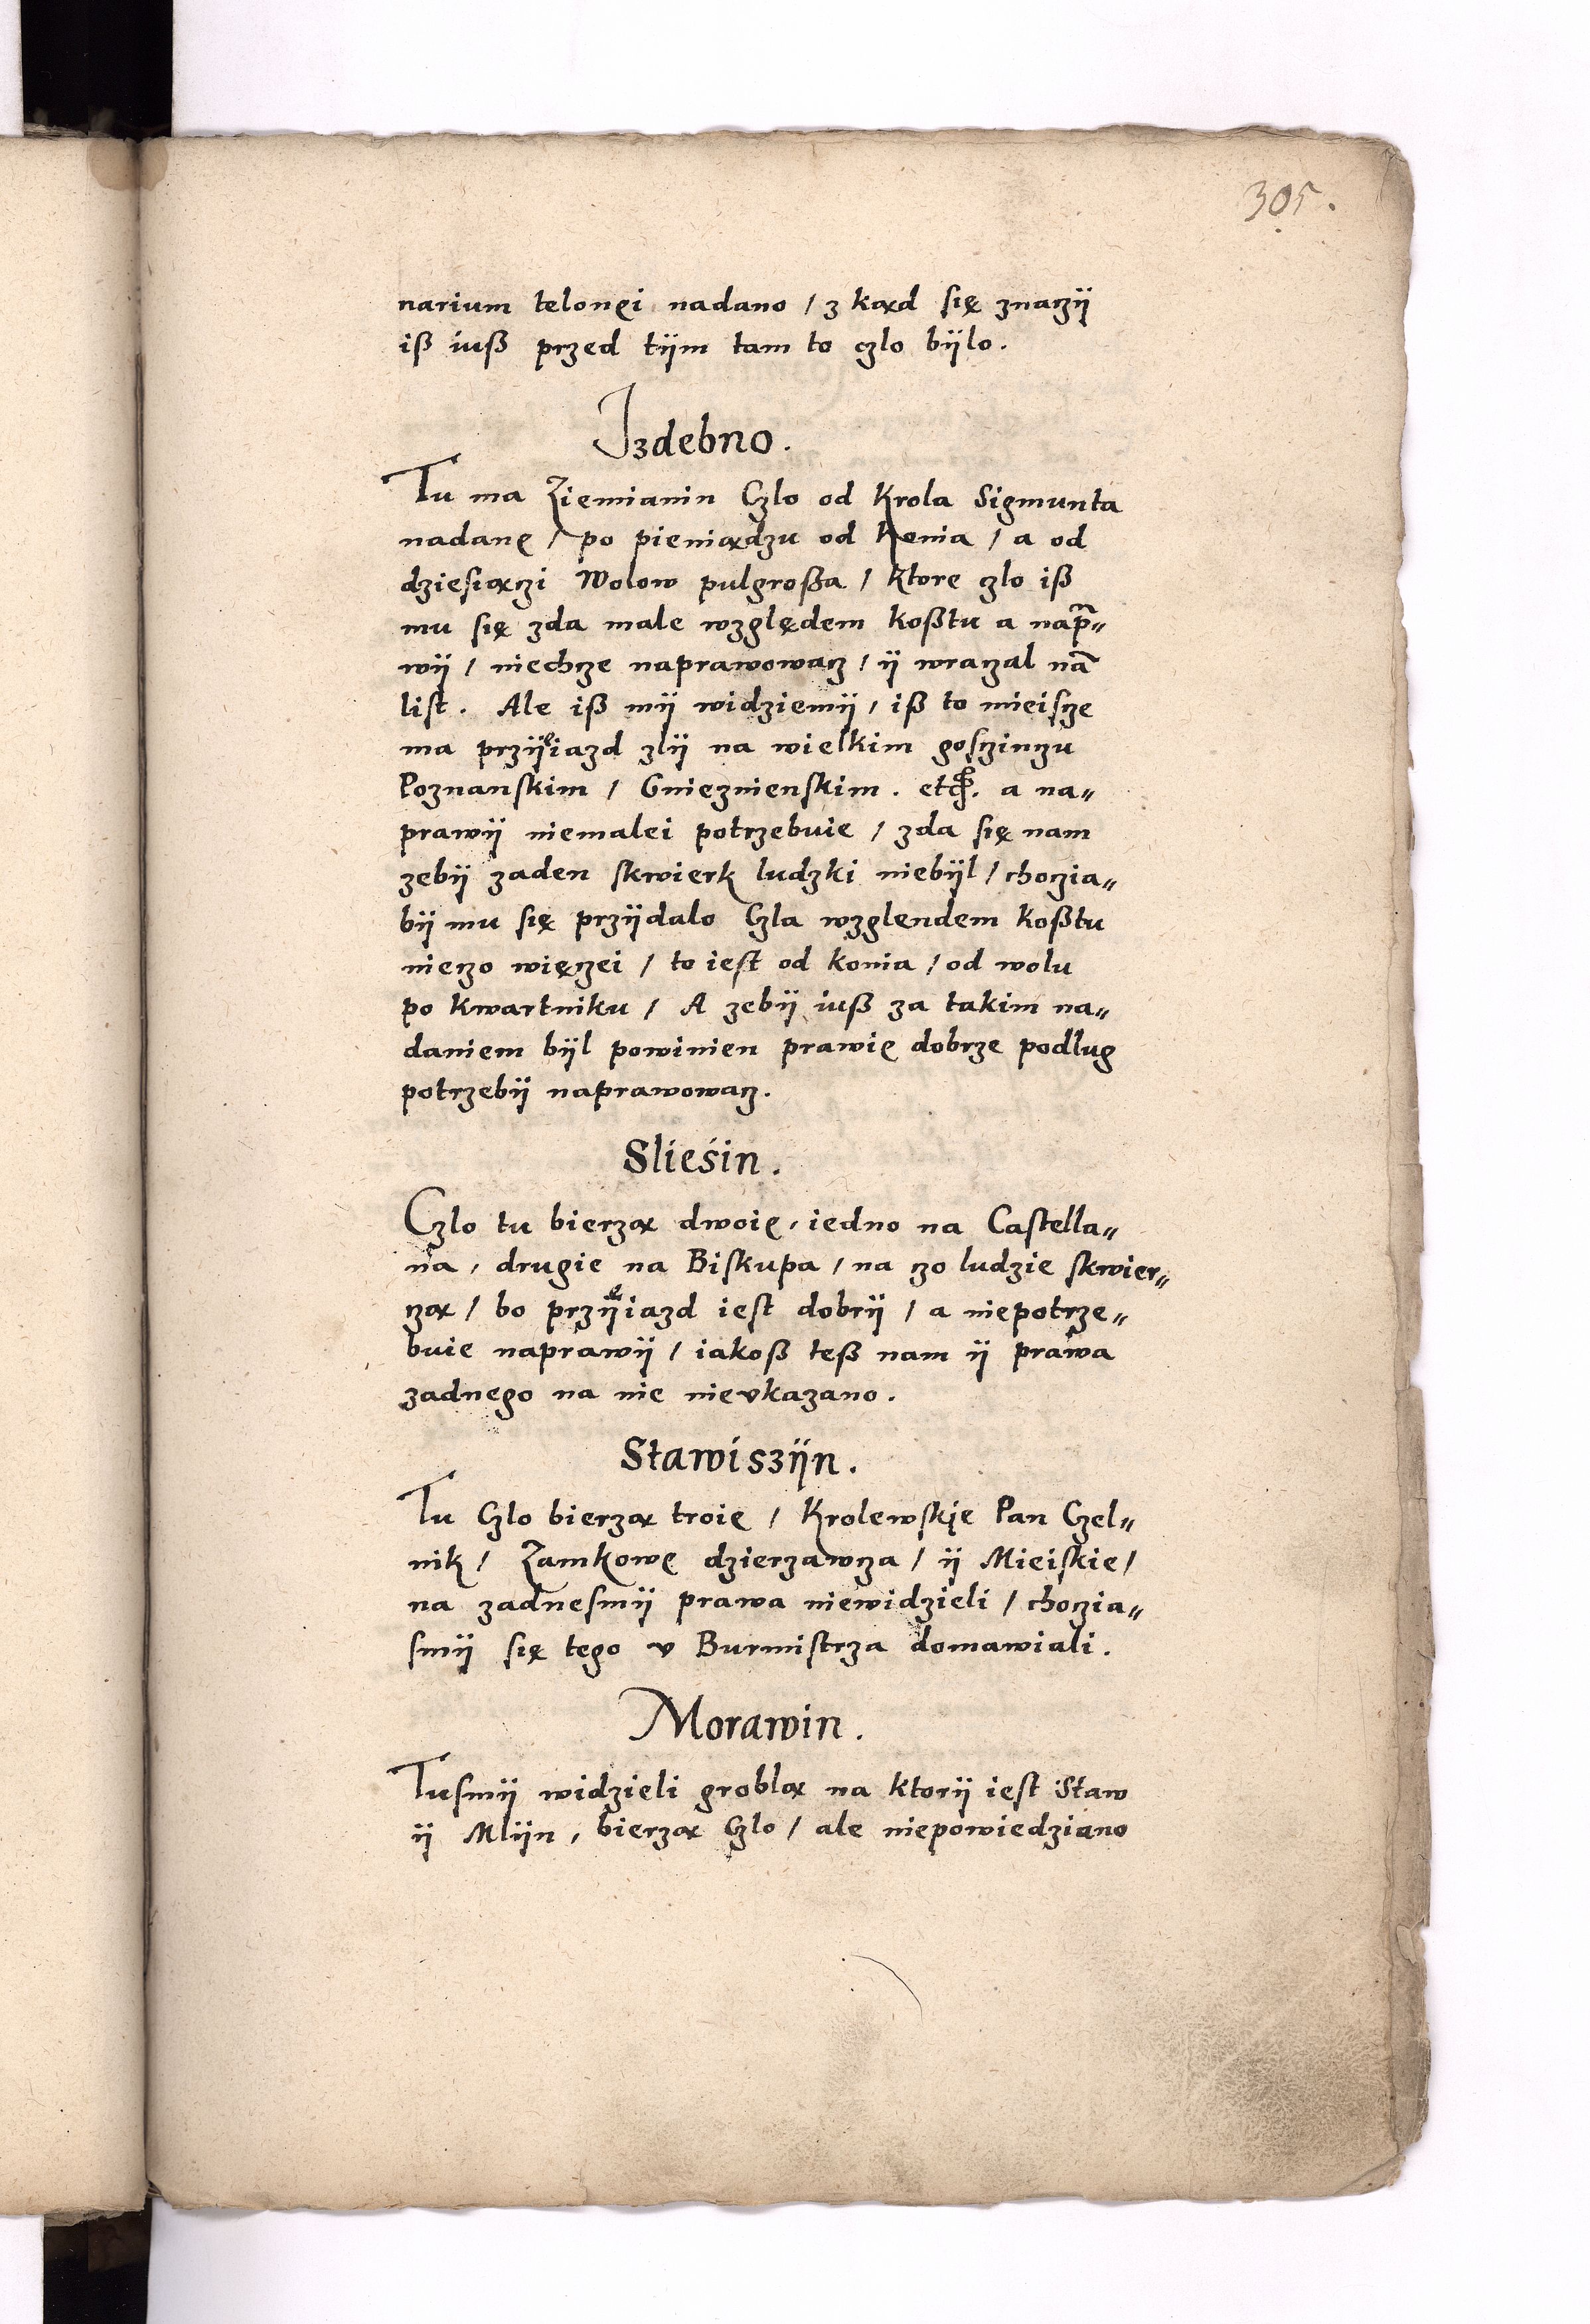 305.
narium telonęi nadano / z kąd się znaczÿ
iß iuß przed tÿm tam to czlo bÿlo.
Izdebno.
Tu ma Ziemianin Czlo od Krola Sigmunta
nadanę / po pieniądzu od Kenia / a od
dziesiączi Wolow pulgroßa / ktore czlo iß
mu się zda male względem koßtu a nap̃=
wÿ / niechcze naprawowacz / ÿ wraczal nã
list. Ale iß mÿ widziemÿ, iß to mieiscze
ma przÿeiazd zlÿ na wielkim gosczinczu
Poznanskim / Gnieznienskim. etc. a na=
prawÿ niemalei potrzebuie / zda się nam
zebÿ zaden skwierk ludzki niebÿl / choczia=
bÿ mu się przÿdalo Czla wzglendem koßtu
nieczo więczei / to iest od konia / od wolu
po kwartniku / A zebÿ iuß za takim na=
daniem bÿl powinien prawię dobrze podlug
potrzebÿ naprawowacz.
Slieśin.
Czlo tu bierzą dwoię, iedno na Castella=
na, drugie na Biskupa / na czo ludzie skwier=
czą / bo przÿeiazd iest dobrÿ / a niepotrze=
buie naprawÿ / iakoß teß nam ÿ prawa
zadnego na nie nievkazano.
Stawiszÿn.
Tu Czlo bierzą troię / Krolewskię Pan Czel=
nik / Zamkowę dzierzawcza / ÿ Mieiskie /
na zadnesmÿ prawa niewidzieli / choczia=
smÿ się tego v Burmistrza domawiali.
Morawin.
Tusmÿ widzieli groblą na ktorÿ iest Staw
ÿ Mlÿn, bierzą Czlo / ale niepowiedziano